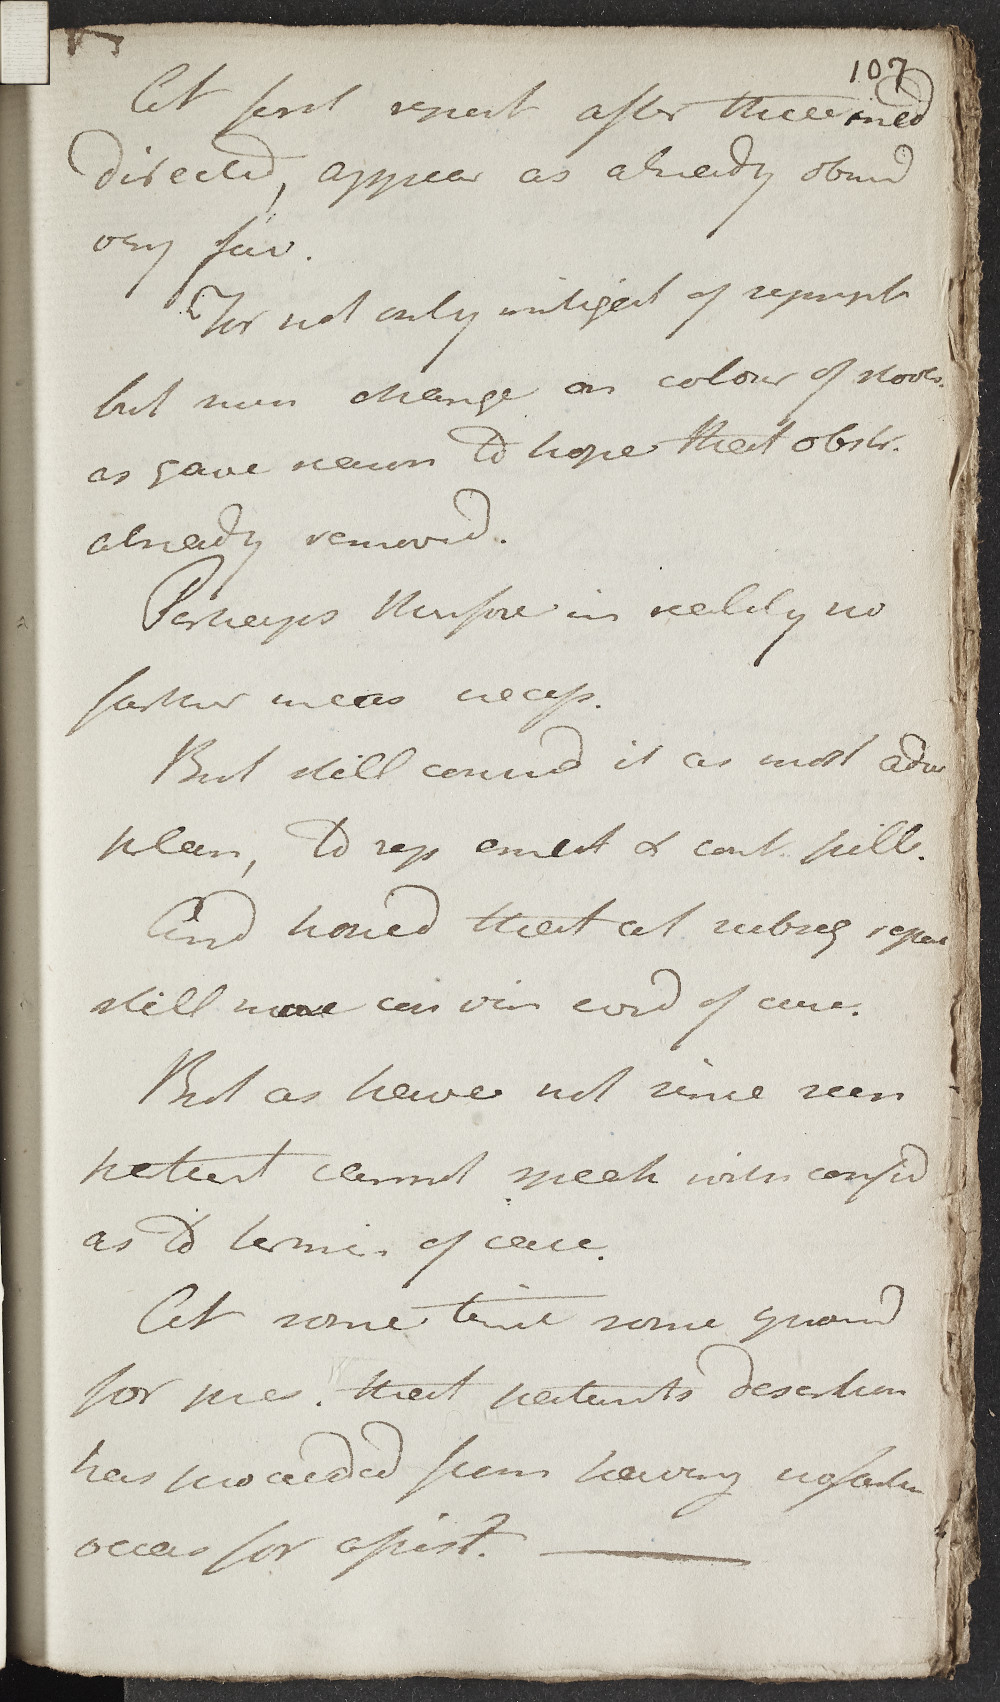 107
At first report after these med
directed, appear as already obserd
very fav.
For not only mitigat of sympt
but even change on colour of stools.
as gave reason to hope that obstr.
already removed.
Perhaps therefore in reality no
farther meas necess.
But still consid it as most adv
plan, to rep emet & cont. pill.
And hoped that at subseq repor
still more convin evid of cure.
But as have not since seen
patient cannot speak with confid
as to termin. of case.
At same time some ground
for pres. that patients desertion
has proceeded from having no farther
occas for assist.